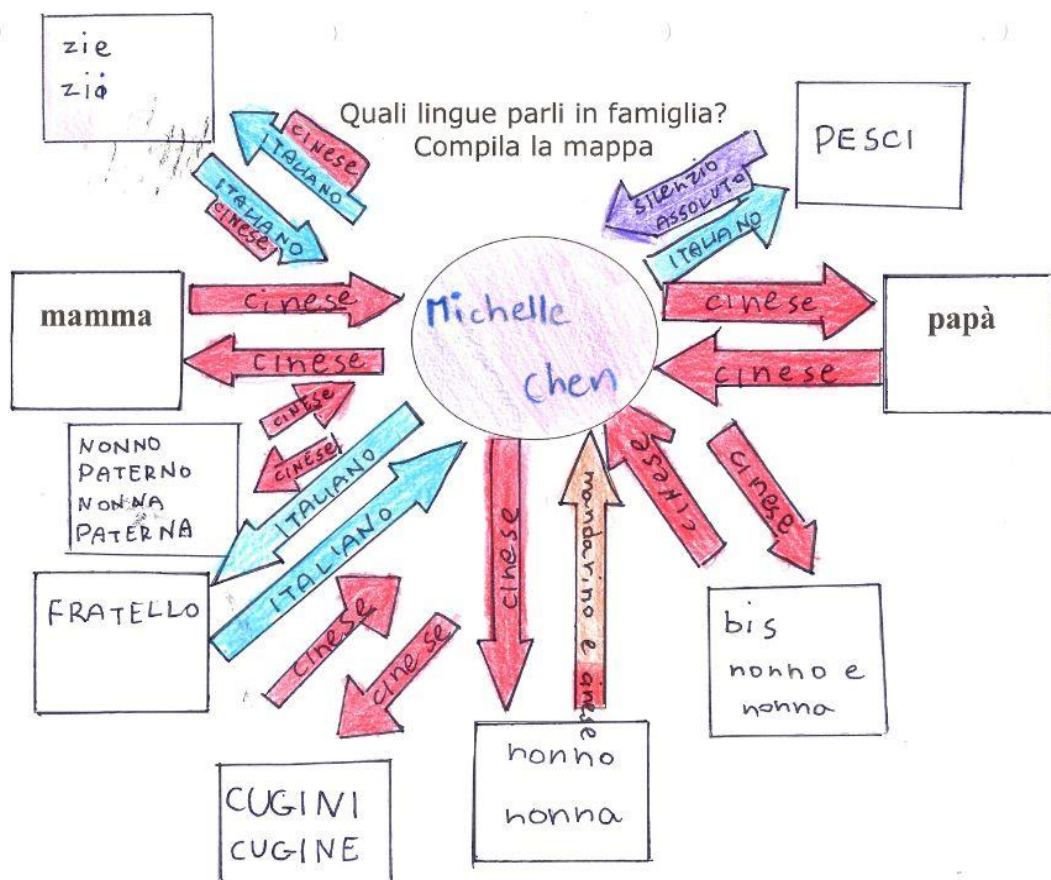 zie
zio
Quali lingue parli in famiglia?
Compila la mappa
CINESE
ITALIANO
ITALIANO
CINESE
SILENZIO
ASSOLUTO
ITALIANO
PESCI
mamma
cinese
cinese
Michelle
Chen
cinese
cinese
papà
NONNO
PATERNO
NONNA
PATERNA
CINESE
CINESE
ITALIANO
ITALIANO
FRATELLO
cinese
cinese
CUGINI
CUGINE
cinese
mandarino e cinese
nonno
nonna
CINESE
cinese
bis
nonno e
nonna